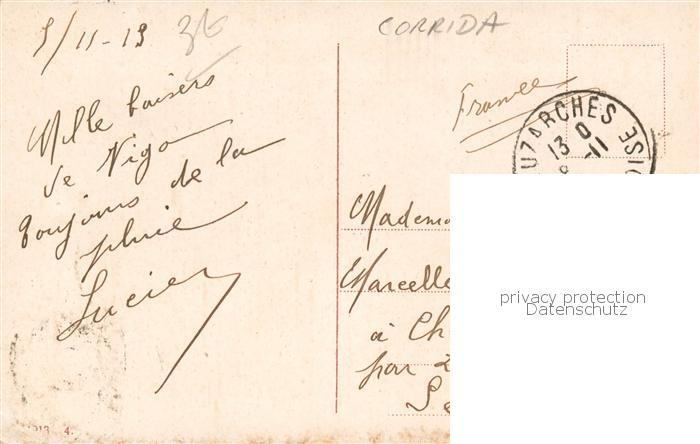 5/11-13
36
CORRIDA
Mille baisers
de Vigo
Toujours de la
pluie
Lucien
France
UZARCHES
OISE
13 0
-11
Mademo
Marcelle
à Ch
par
Se
privacy protection
Datenschutz
4.